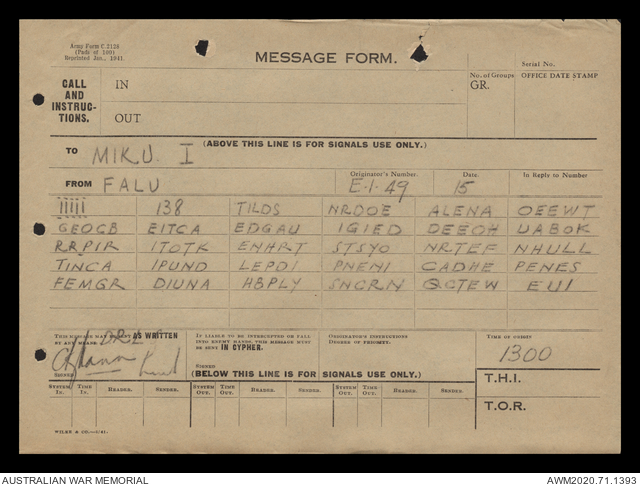 Army Form C 2128
(Pads of 100)
Reprinted Jan., 1941.
MESSAGE FORM.
Serial No.
CALL AND INSTRUC-TIONS.
IN
No. of Groups
GR.
OFFICE DATE STAMP
OUT
(ABOVE THIS LINE IS FOR SIGNALS USE ONLY.)
TO MIKU. I
FROM FALU
Originator's Number.
E.1.49
Date.
15
In Reply to Number
138 TILDS NRDOE ALENA OEEWT
GEOGB EITCA EDGAU IGIED DEEOH UABOK
RRPIR ITOTK ENHRT STSYO NRTEF NHULL
TINCA IPUND LEPDI PNENI CADHE PENES
FEMGR DIUNA HBPLY SNCRN QCTEW EUI
THIS MESSAGE MAY BE SENT AS WRITTEN
BY ANY MEANS.
SIGNED
IF LIABLE TO BE INTERCEPTED OR FALL
INTO ENEMY HANDS, THIS MESSAGE MUST
BE SENT IN CYPHER.
SIGNED
ORIGINATOR'S INSTRUCTIONS
DEGREE OF PRIORITY.
TIME OF ORIGIN
1300
(BELOW THIS LINE IS FOR SIGNALS USE ONLY.)
T.H.I.
SYSTEM IN. TIME IN. READER. SENDER. SYSTEM OUT. TIME OUT. READER. SENDER. SYSTEM OUT. TIME OUT. READER. SENDER.
T.O.R.
AUSTRALIAN WAR MEMORIAL
AWM2020.71.1393